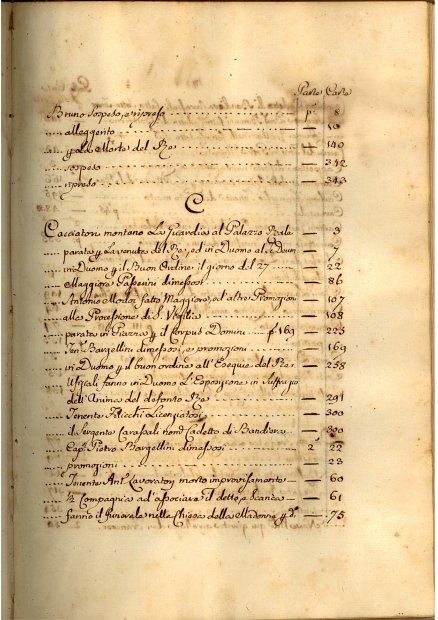 Parte Carte
Bruno sospeso, e ripreso p.a 8
alleggerito — 10
p la Morte del Re 140
sospeso — 342
ripreso — 343
C
Cacciatori montano La Guardia al Palazzo Reale — 3
parata p La venuta del Re, ed in Duomo al Te Deum — 7
in Duomo p il Buon Ordine il giorno del 27 — 22
Maggiore Passerini dimesso — 86
Antonio fatto Maggiore, ed altre Promozioni — 107
alle Processione di S. — 108
parata in Piazza p il Corpus Domini p 169 — 225
Ten.e Bargellini dimessosi, e promozioni — 169
in Duomo p il buon ordine all' Esequie del Re — 258
Ufiziali fanno in Duomo L'Esposizione in Suffragio
dell'Anima del defonto Re — 291
Tenente Licenziatosi — 300
il Sergente Cadetto di Bandiera — 300
Cap.o Pietro Bargellini dimessosi 2.a 22
promozioni — 23
Tenente Ant.o Lavoratori morto improvisamente — 60
1/2 Compagnia ad associare il detto — 61
fanno il Funerale nella Chiesa della Madonna — 75